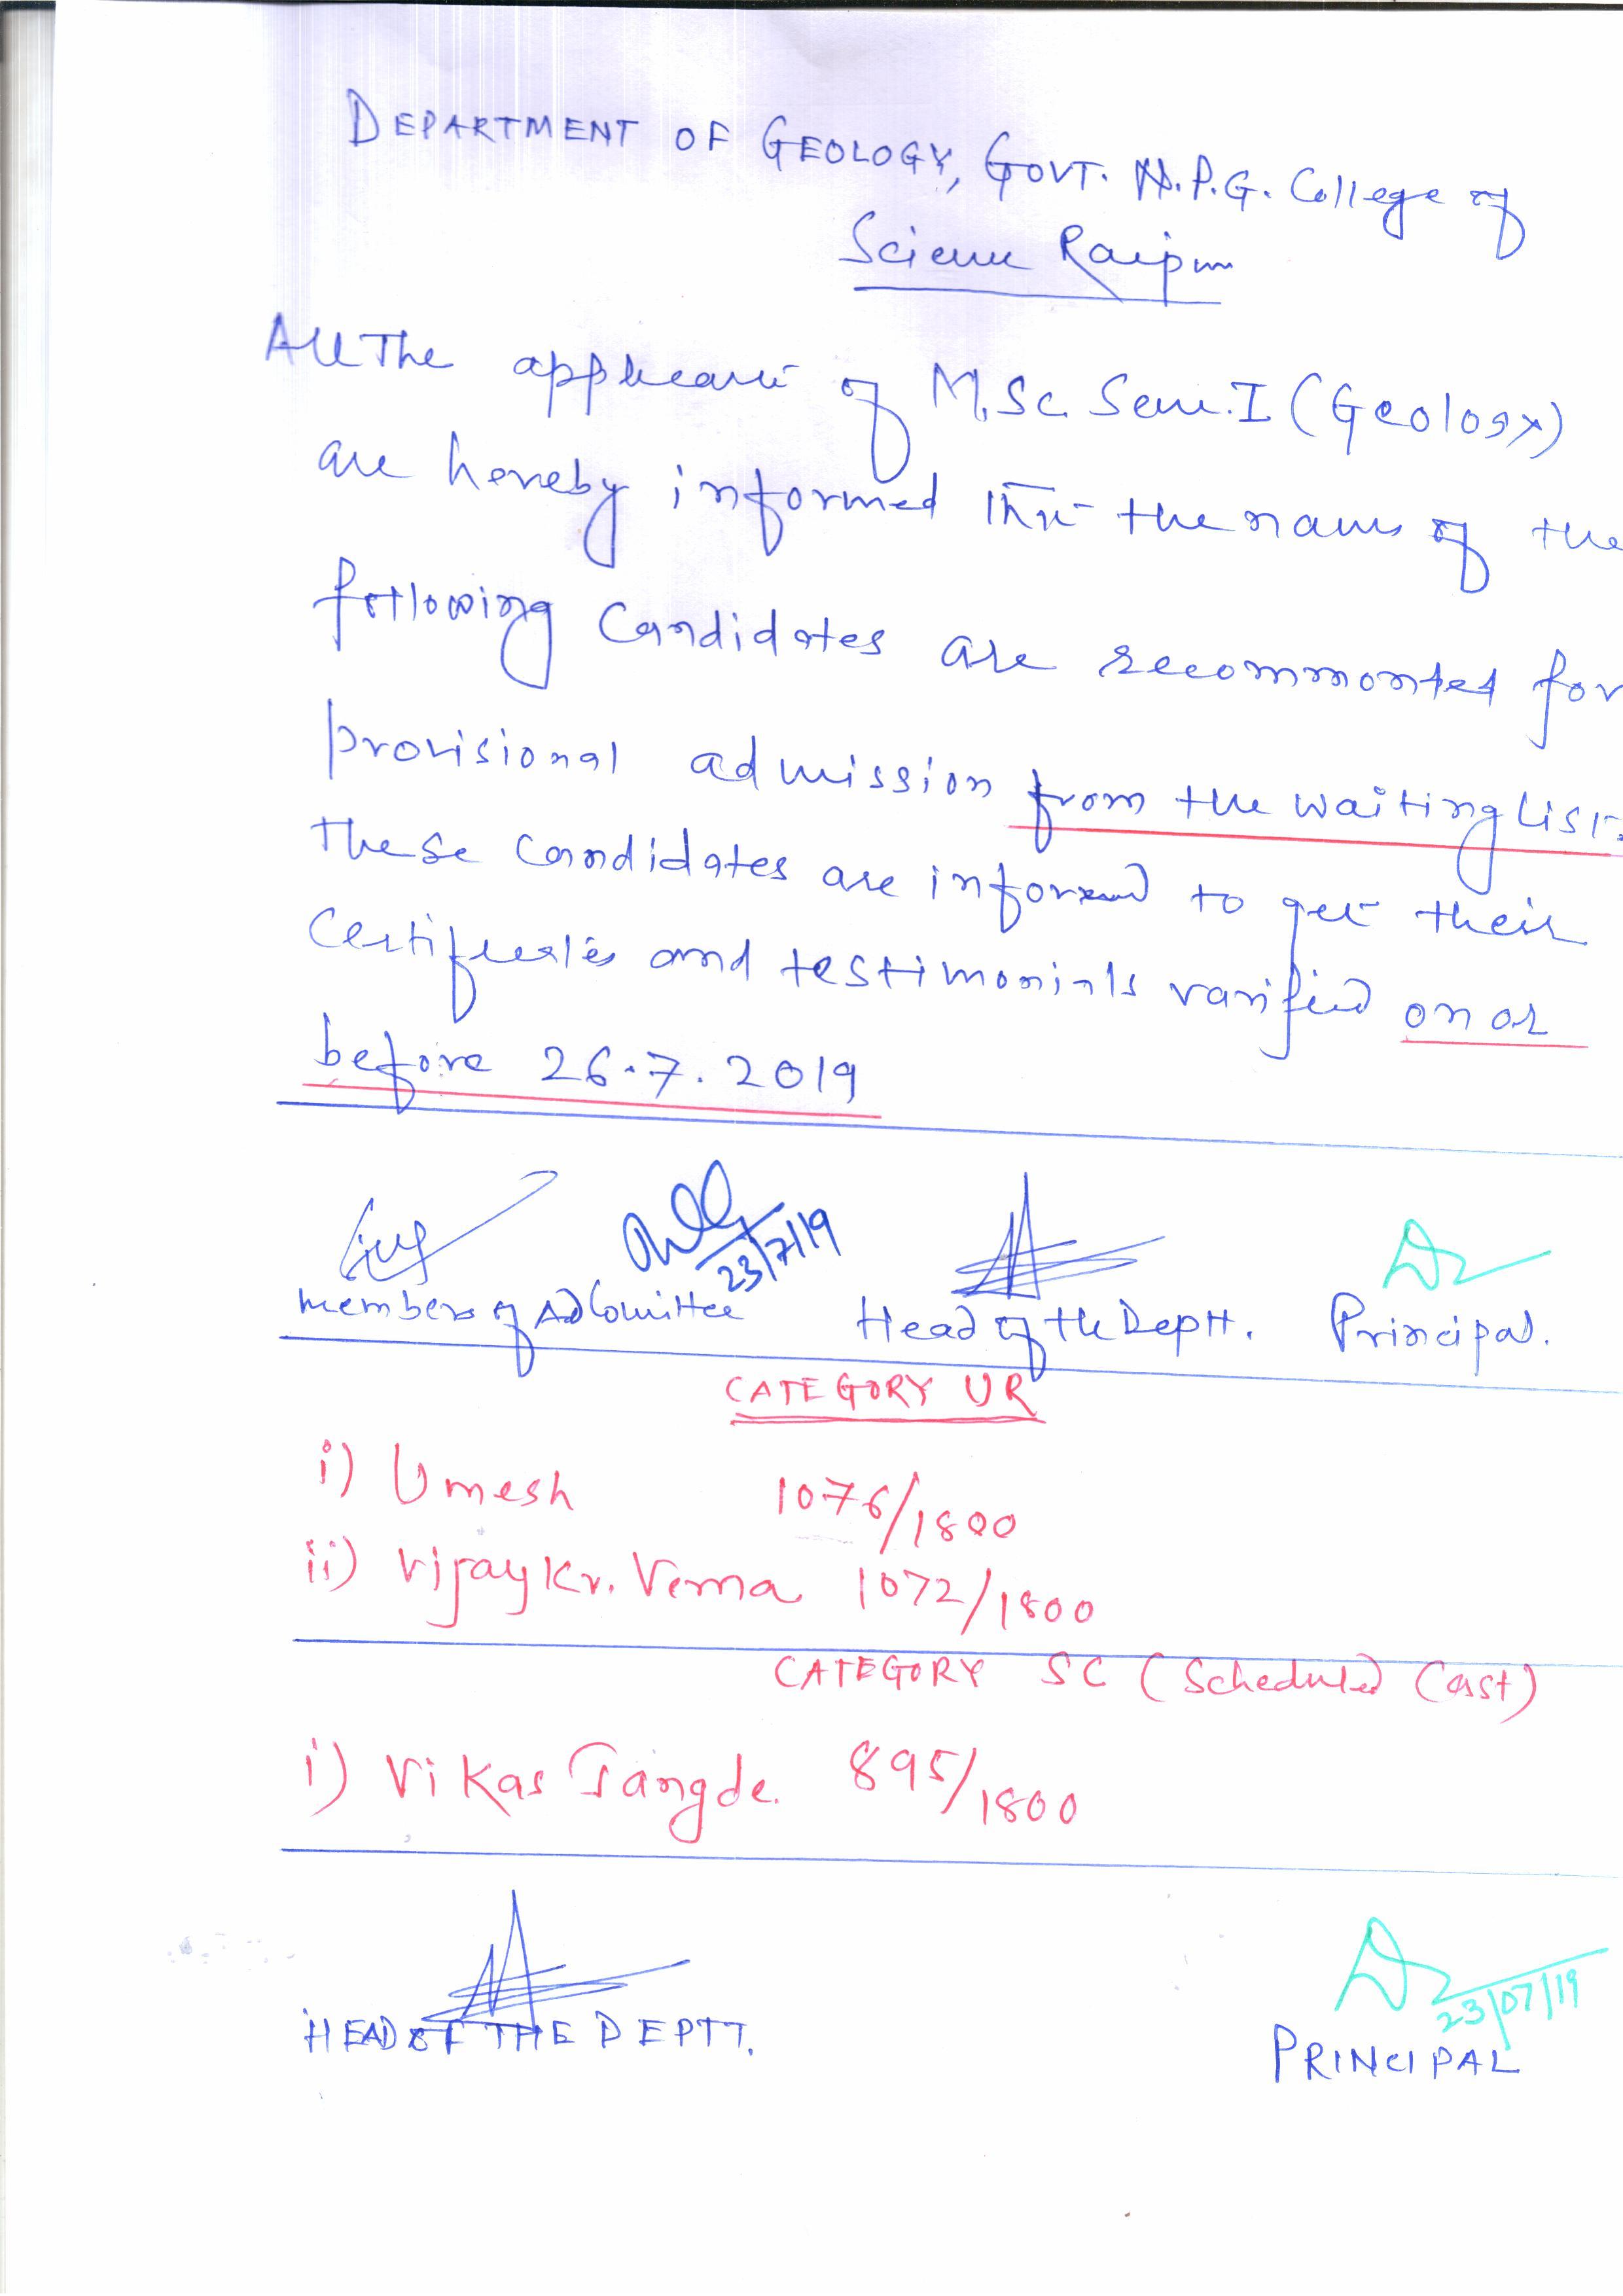 DEPARTMENT OF GEOLOGY, GOVT. N.P.G. College of
Science Raipur
All The applicant of M.Sc. Sem. I (Geology)
are hereby informed that the name of the
following Candidates are recommonted for
provisional admission from the waiting List.
These Candidates are informed to get their
Certificates and testimonials varified on or
before 26.7.2019
23/7/19
members of Ad Comittee Head of the Deptt. Principal.
CATEGORY UR
i) Umesh 1076/1800
ii) Vijay Kr. Verma 1072/1800
CATEGORY SC (Scheduled Cast)
i) Vikas Tangde. 895/1800
23/07/19
HEAD OF THE DEPTT. PRINCIPAL